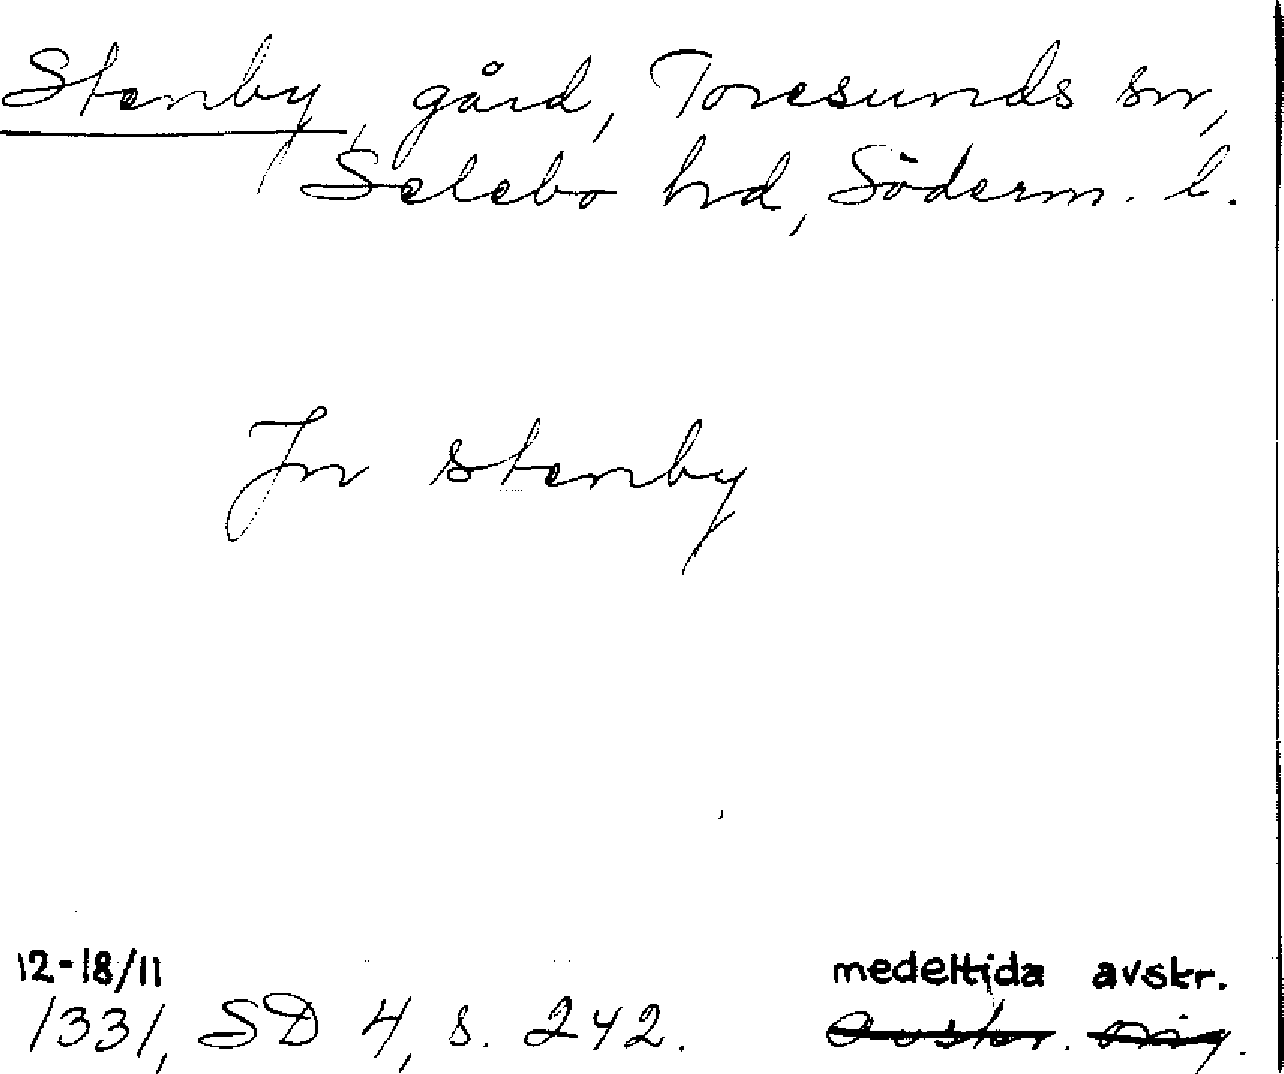 Stenby, gård, Toresunds sn,
Selebo hd, Söderm. l.
In stenby
12-18/11 medeltida avskr.
1331, SD 4, s. 242. Avskr. orig.